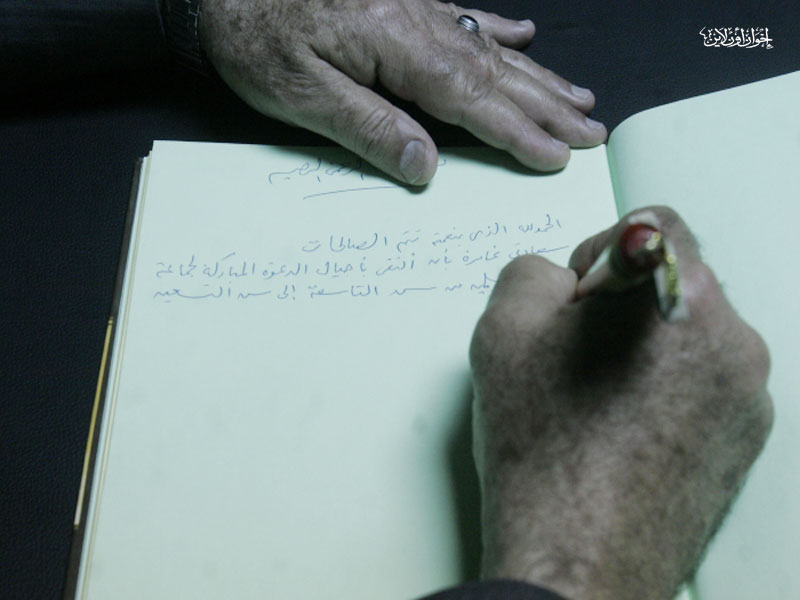 إخوان أون لاين
الرحمن الرحيم
الحمد لله الذي بنعمته تتم الصالحات
سعادتي غامرة بأن ألتقي بأجيال الدعوة المباركة لجماعة
من سن التاسعة إلى سن التسعين